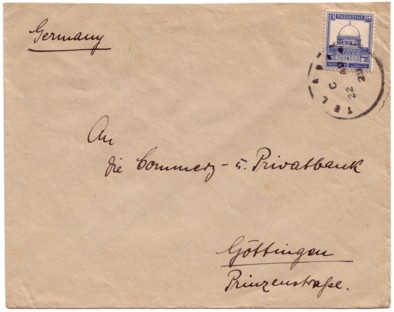 Germany
PALESTINE
TEL AVIV
22
An
die Commerz- u. Privatbank
Göttingen
Prinzenstraße.